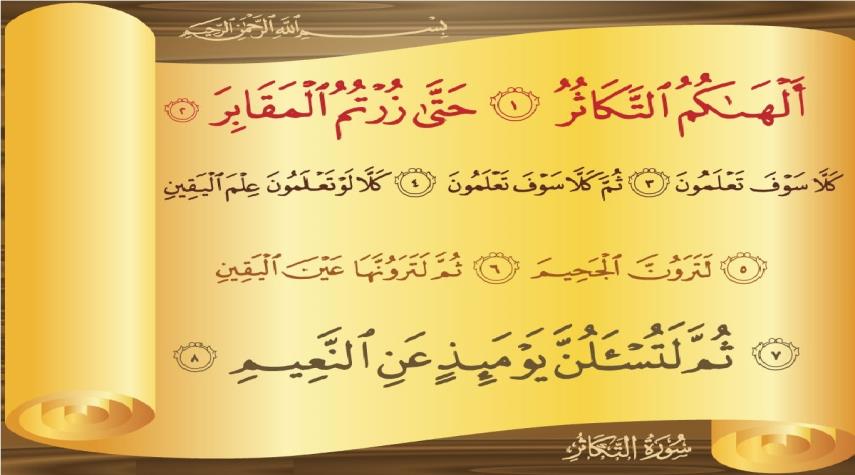 بِسْمِ ٱللَّهِ ٱلرَّحْمَٰنِ ٱلرَّحِيمِ
أَلْهَىٰكُمُ ٱلتَّكَاثُرُ ١ حَتَّىٰ زُرْتُمُ ٱلْمَقَابِرَ ٢
كَلَّا سَوْفَ تَعْلَمُونَ ٣ ثُمَّ كَلَّا سَوْفَ تَعْلَمُونَ ٤ كَلَّا لَوْ تَعْلَمُونَ عِلْمَ ٱلْيَقِينِ
٥ لَتَرَوُنَّ ٱلْجَحِيمَ ٦ ثُمَّ لَتَرَوُنَّهَا عَيْنَ ٱلْيَقِينِ
٧ ثُمَّ لَتُسْـَٔلُنَّ يَوْمَئِذٍ عَنِ ٱلنَّعِيمِ ٨
سُورَةُ التَّكَاثُرِ